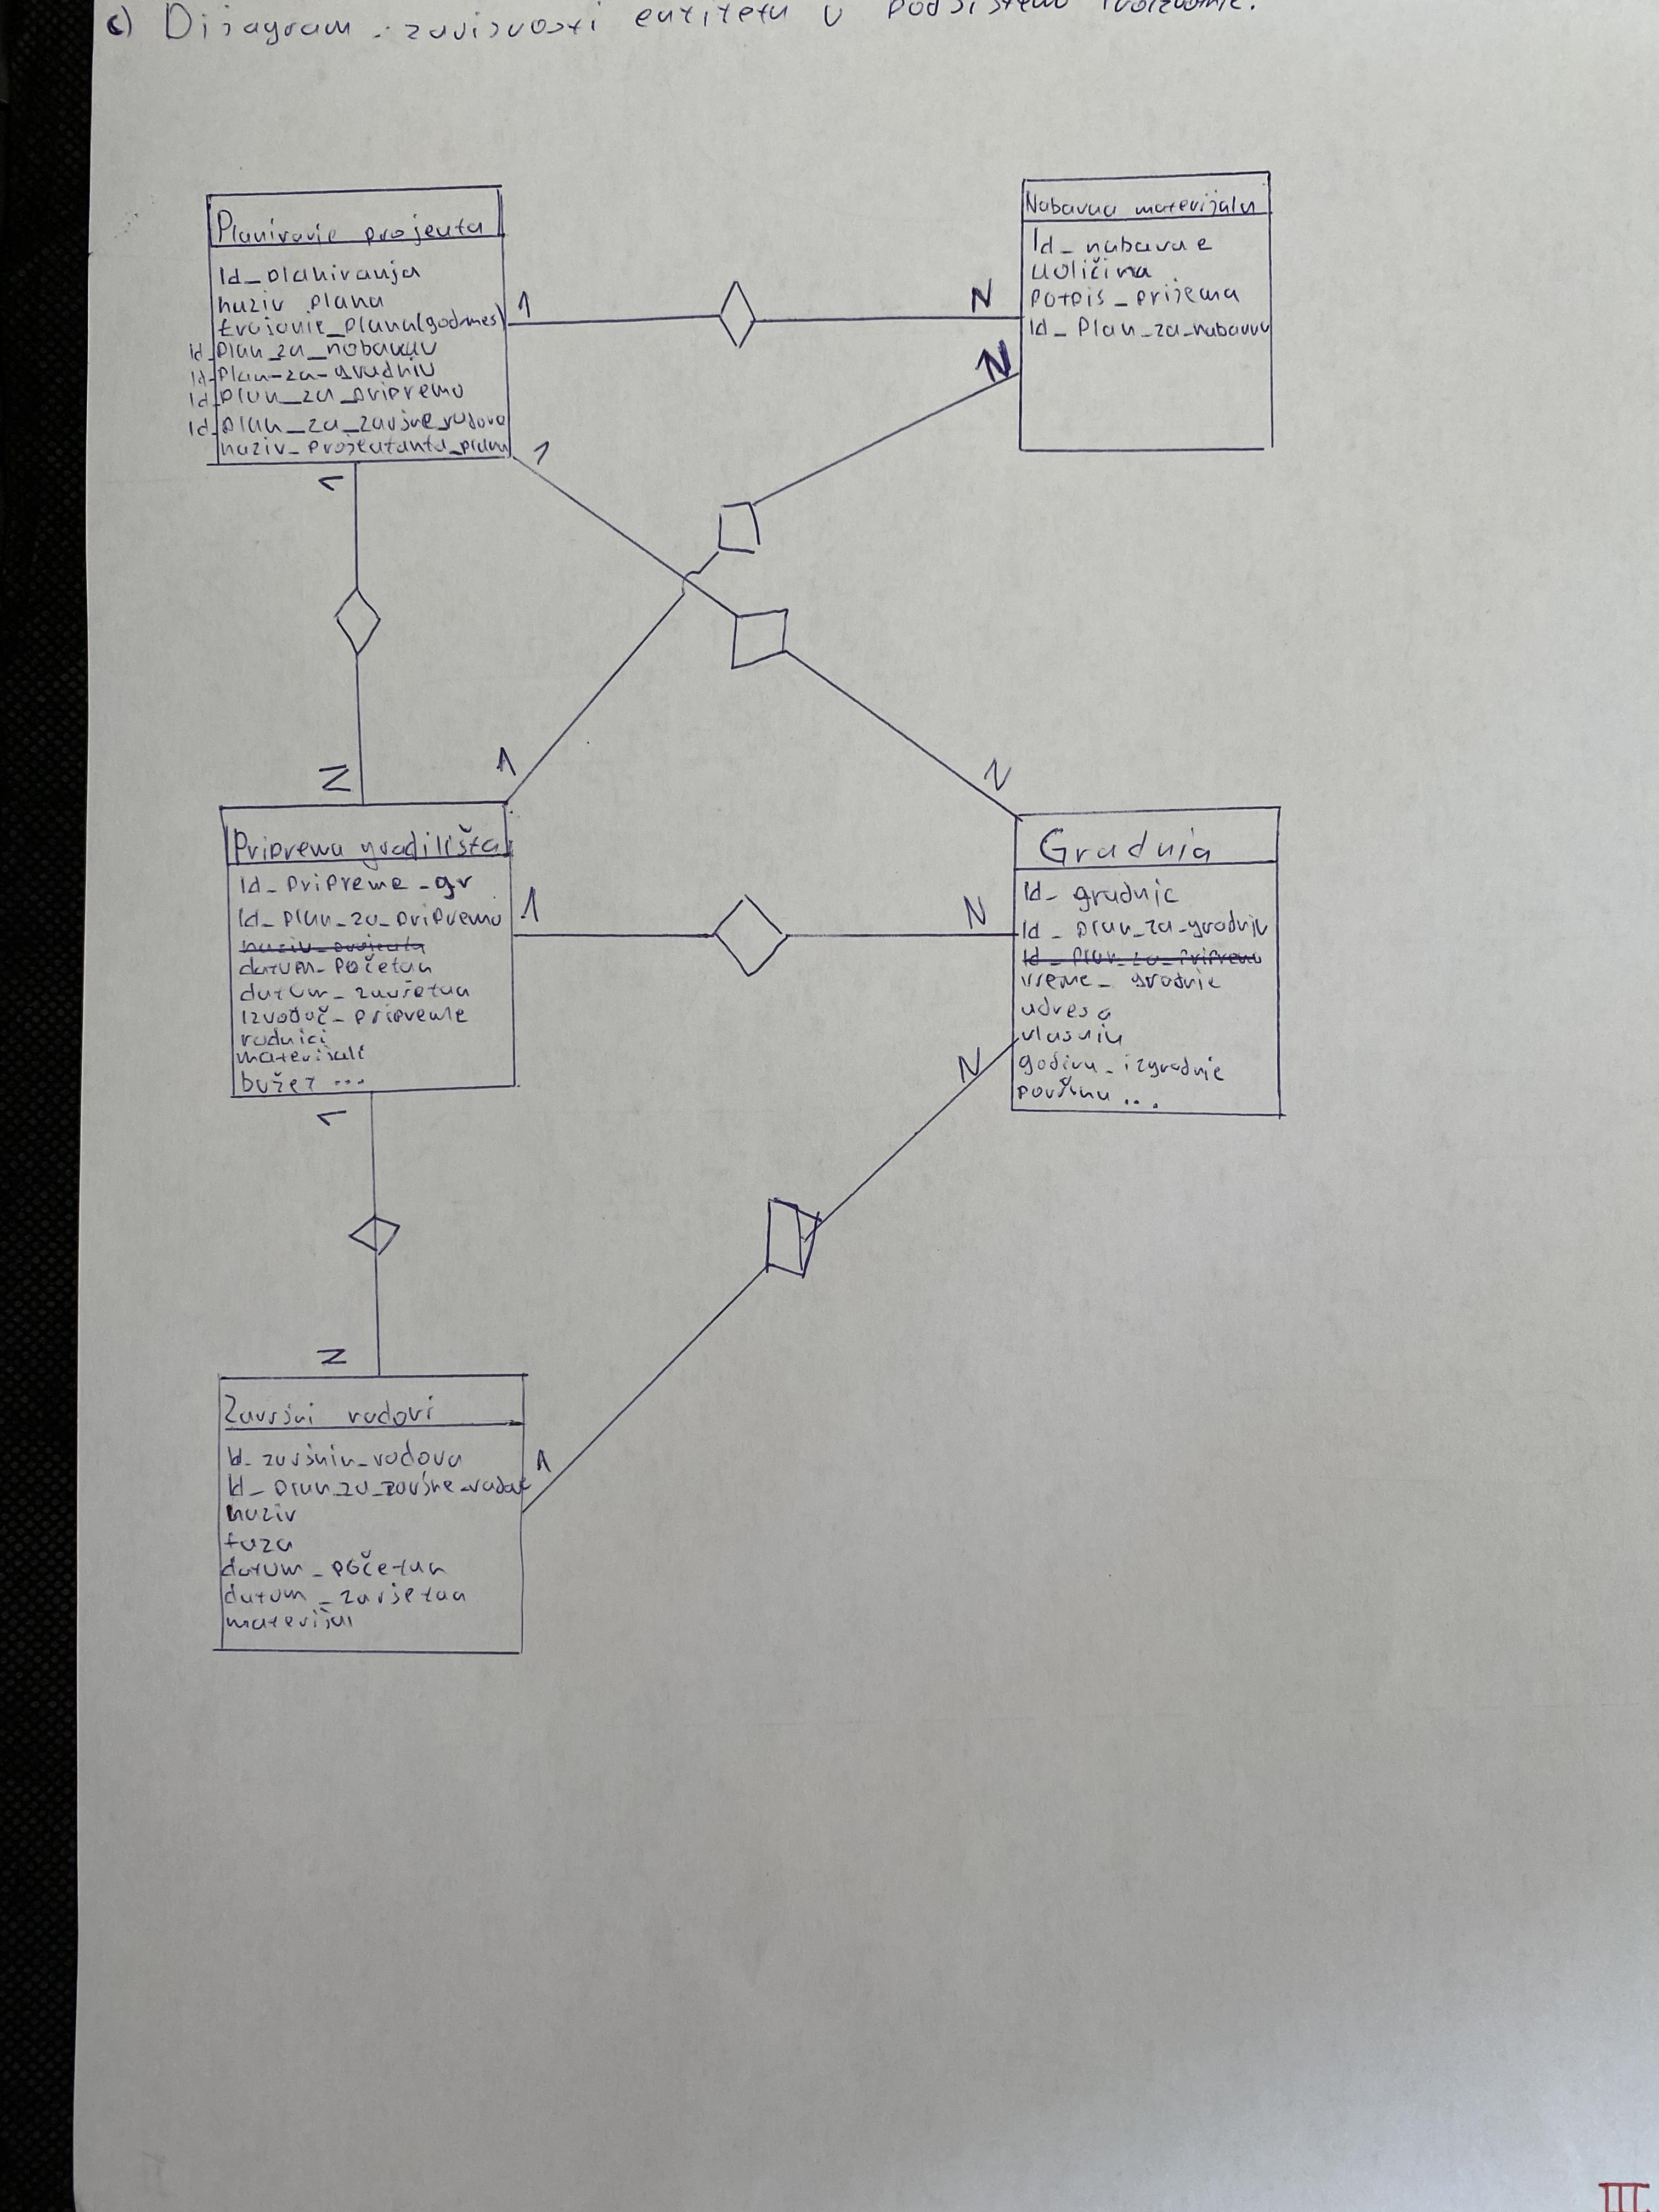 c) Dijagram zavisnosti entiteta u podsistemu
Planiranje projekta
Id_planiranja
naziv plana
trajanje_plana(god,mes)
Id_plan_za_nabavku
Id_plan_za_gradnju
Id_plan_za_pripremu
Id_plan_za_završne_radove
naziv_projektanta_plana
1
N
1
1
N
Nabavka materijala
Id_nabavke
količina
potpis_prijema
Id_Plan_za_nabavku
N
1
N
Priprema gradilišta
Id_pripreme_gr
Id_plan_za_pripremu
datum_početak
datum_završetka
izvođač_pripreme
radnici
materijali
budžet ...
1
N
1
N
Gradnja
Id_gradnje
Id_plan_za_gradnju
Id_plan_za_pripremu
vreme_gradnje
adresa
vlasnik
godina_izgradnje
površina ...
N
1
Završni radovi
Id_završnih_radova
Id_plan_za_završne_radove
naziv
faza
datum_početak
datum_završetak
materijal
III